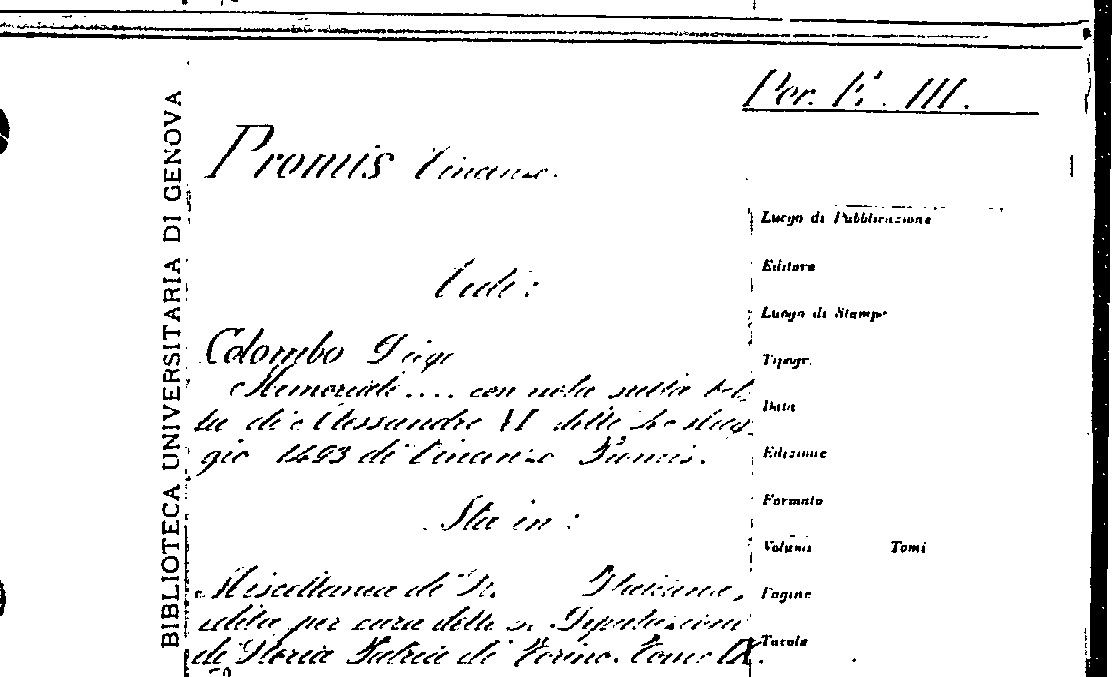 Per. E. III.
Promis Vincenzo.
Vedi:
Colombo Diego
Memoriale .... con nota sulla bol-
la di Alessandro VI delle mag-
gio 1493 di Vincenzo Promis.
Sta in:
Miscellanea di St. Italiana,
edita per cura della R. Deputazione
di Storia Patria di Torino. Tomo IX.
BIBLIOTECA UNIVERSITARIA DI GENOVA
Luogo di Pubblicazione
Editore
Luogo di Stampa
Tipogr.
Data
Edizione
Formato
Volumi Tomi
Pagine
Tavole